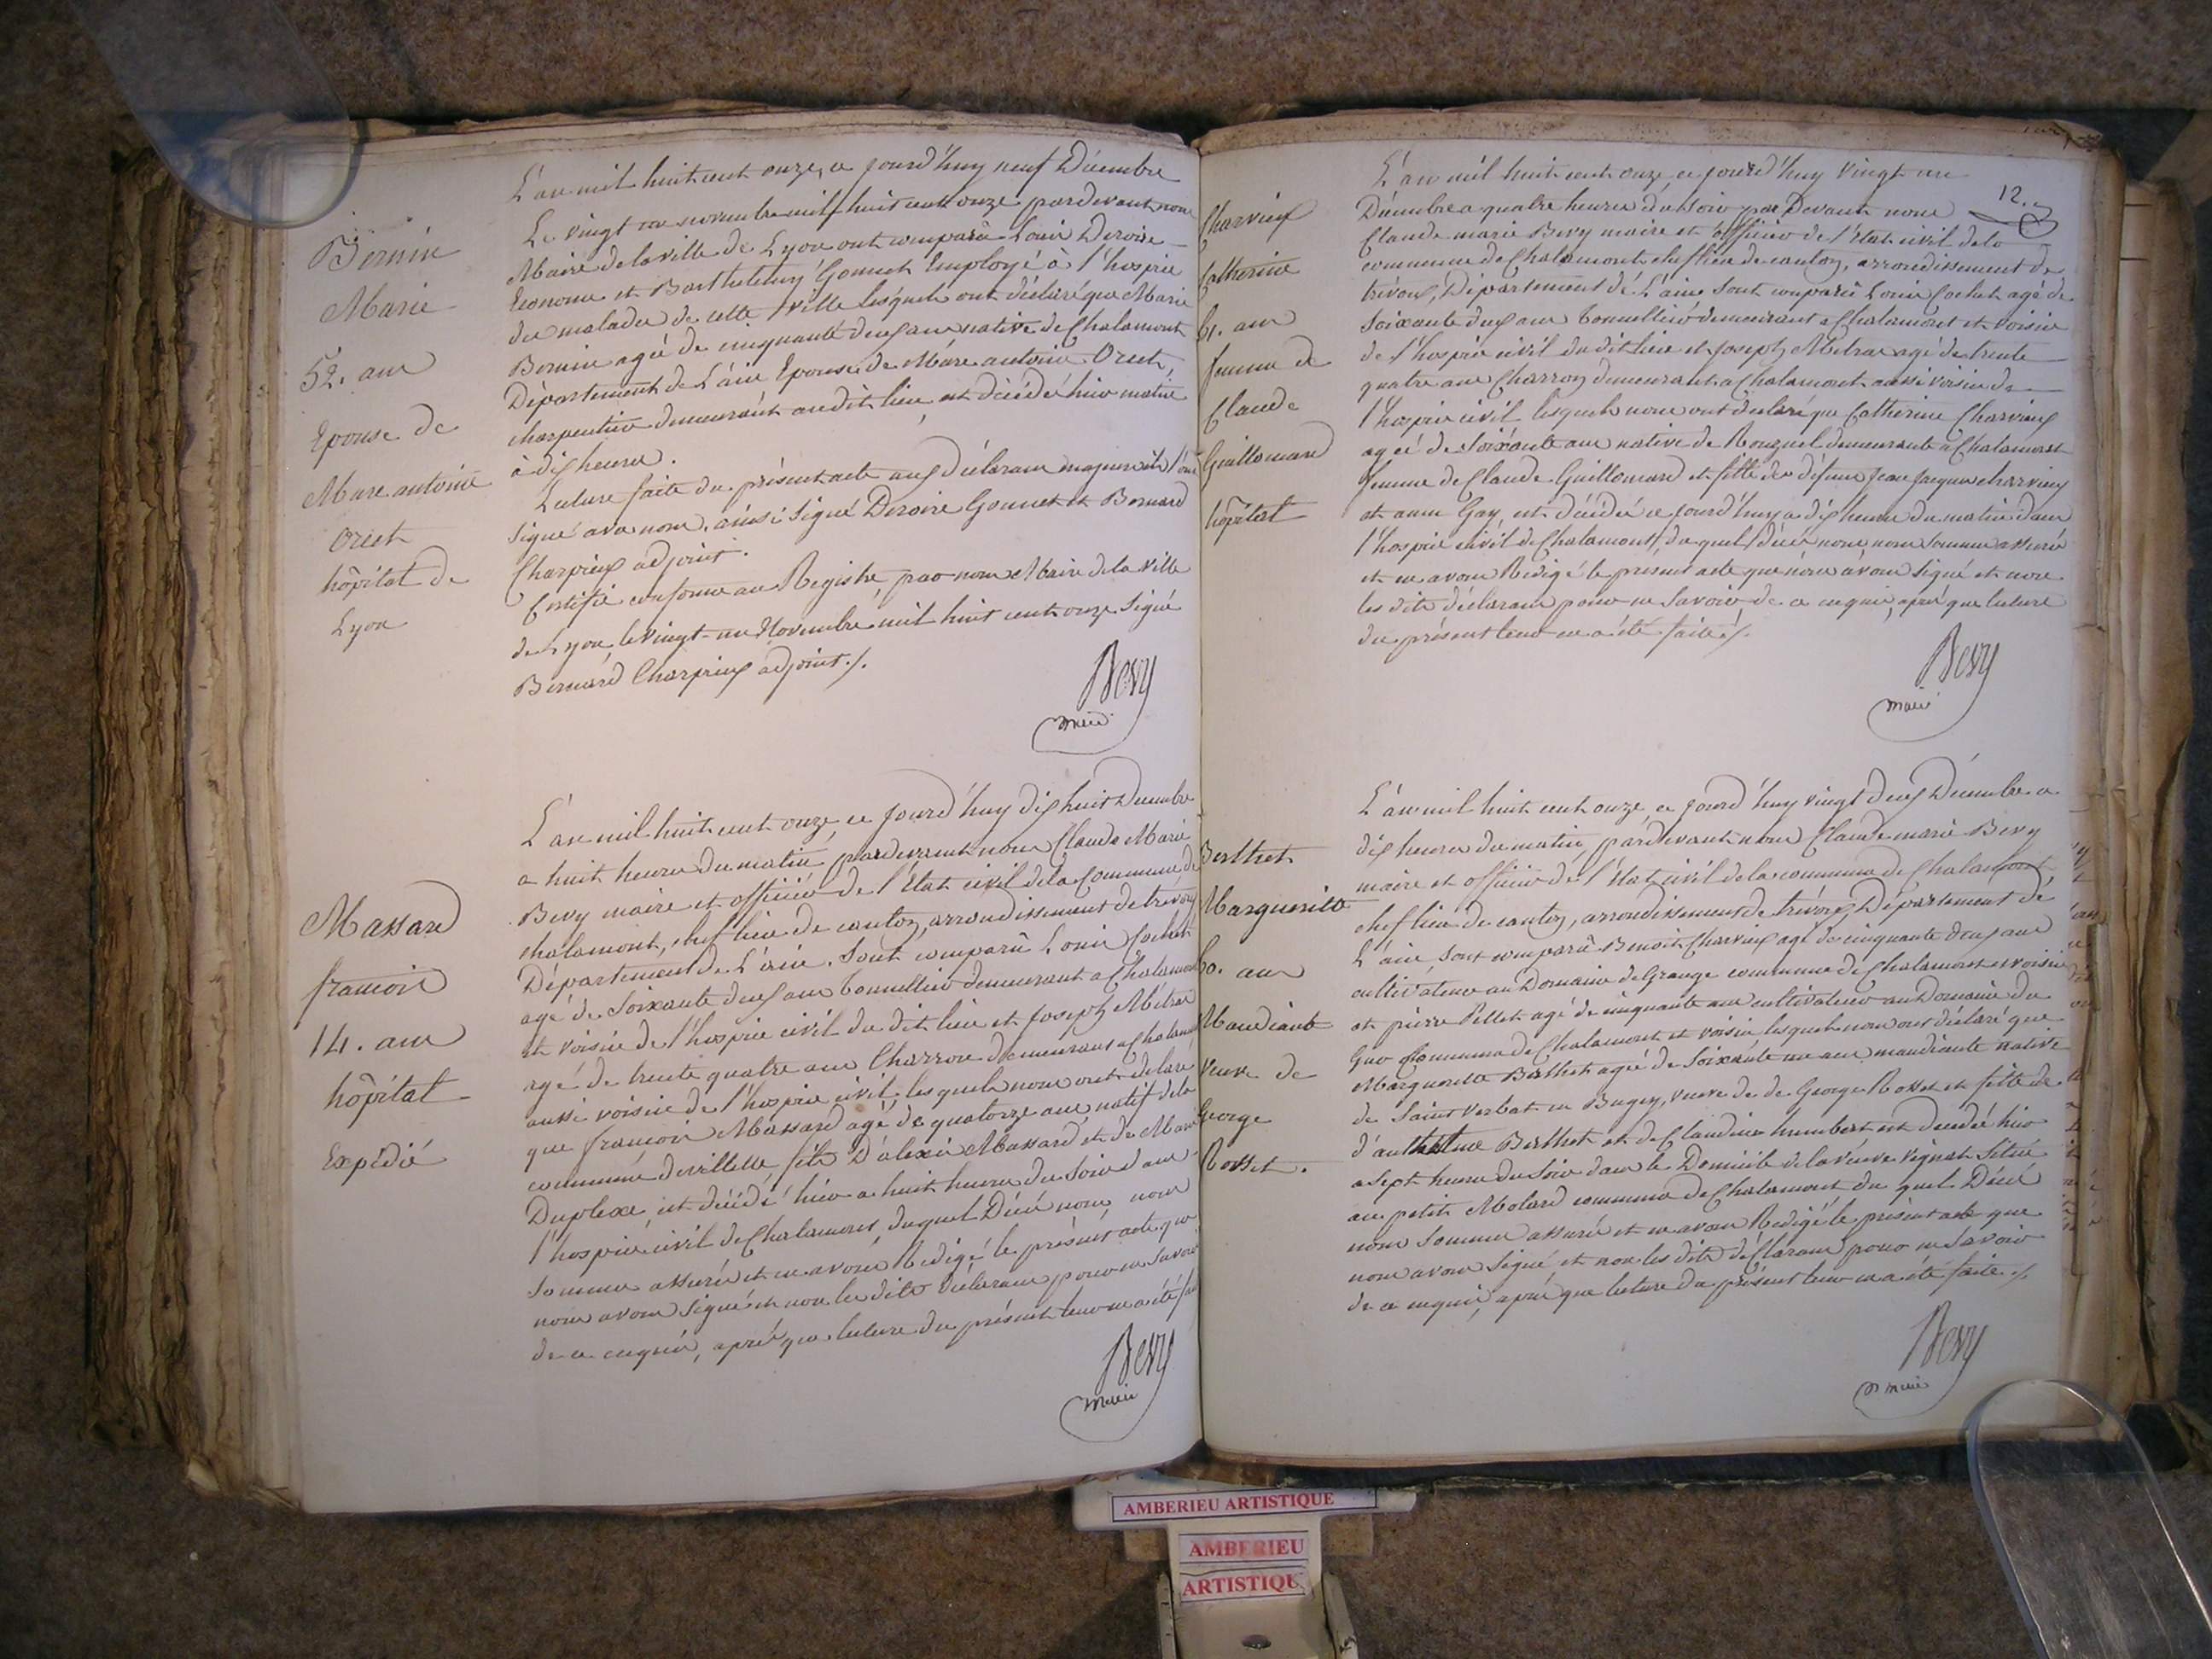 Bernin
Marie
52. ans
Epouse de
Marc antoine
Orset
hôpital de
Lyon
L'an mil huit cent onze, ce jourd'huy neuf Décembre
Le vingt un novembre mil huit cent onze pardevant nous
Maire de la ville de Lyon ont comparu Louis Deroire
Econome et Barthelemy Gonnet Employé à l'hospice
des malades de cette ville lesquels ont déclaré que Marie
Bernin agée de cinquante deux ans, native de Chalamont
Département de L'ain Epouse de Marc antoine Orset,
charpentier demeurant audit lieu, est décédé hier matin
à dix heures.
Lecture faite du présent acte aux déclarans majeurs ils l'ont
signé avec nous. ainsi signé Deroire Gonnet et Bernard
Charpieux adjoint.
Certifié conforme au Registre, par nous Maire de la ville
de Lyon, le vingt-un Novembre mil huit cent onze signé
Bernard Charpieux adjoint ./.
Bevy
maire
Massard
francois
14. ans
hôpital
Expédié
L'an mil huit cent onze, ce jourd'huy dix huit Décembre
a huit heures du matin, pardevant nous Claude Marie
Bevy maire et officier de l'Etat civil de la Commune de
chalamont, chef lieu de canton, arrondissement de trevoux
Département de L'ain. Sont comparu Louis Cochet
agé de soixante deux ans tonnellier demeurant a Chalamont
et voisin de l'hospice civil du dit lieu et Joseph Mitras
agé de trente quatre ans Charron demeurant a Chalamont
aussi voisin de l'hospice civil, lesquels nous ont declaré
que francois Massard agé de quatorze ans, natif de la
commune de villette fils D'alexis Massard et de Marie
Duplexe, est décédé hier a huit heures du soir dans
l'hospice civil de Chalamont, duquel Décé nous, nous
sommes assurés et en avons Redigé le présent acte que
nous avons signé et non les dits déclarans pour ne savoir
de ce enquis, après que lecture du présent leur en a été
Bevy
maire
12.
Charvieux
Catherine
61. ans
femme de
Claude
Guillomard
hôpital
L'an mil huit cent onze, ce jourd'huy vingt un
Décembre a quatre heures du soir par Devant nous
Claude marie Bevy maire et officier de l'Etat civil de la
commune de Chalamont chef lieu de canton, arrondissement de
trévoux, Département de L'ain sont comparû Louis Cochet agé de
soixante deux ans tonnellier demeurant a Chalamont et voisin
de l'hospice civil du dit lieu et Joseph Mitras agé de trente
quatre ans Charron demeurant a Chalamont aussi voisin de
l'hospice civil lesquels nous ont declaré que Catherine Charvieux
agée de soixante ans native de demeurante a Chalamont
femme de Claude Guillomard et fille de défuns Jean Jacques charvieux
et anne Gay, est décédée ce jourd'huy a dix heures du matin dans
l'hospice civil de Chalamont, du quel décès nous, nous sommes assurés
et en avons Redigé le present acte que nous avons signé et non
les dits déclarans pour ne savoir de ce enquis, après que lecture
du présent leur en a été faite ./.
Bevy
maire
Berthet
Marguerite
60. ans
Mandiante
veuve de
George
Rosset.
L'an mil huit cent onze, ce jourd'huy vingt deux Décembre a
dix heures du matin, pardevant nous Claude marie Bevy
maire et officier de l'état civil de la commune de Chalamont,
chef lieu de canton, arrondissement de trévoux, Département de
L'ain, sont comparû Benoit Charvieux agé de cinquante deux ans
cultivateur au Domaine de Grange commune de Chalamont et voisin
et pierre Pellet agé de cinquante ans cultivateur au Domaine du
Commune de Chalamont et voisin lesquels nous ont déclaré que
Marguerite Berthet agée de soixante un ans mandiante native
de Saint en Bugey, veuve de de George Rosset et fille de
d'anthelme Berthet et de Claudine humbert est decedé hier
a sept heures du soir dans le Domicile de la veuve situé
au petit Molard commune de Chalamont du quel Décé
nous sommes assurés et en avons Redigé le présent acte que
nous avons signé et non les dits déclarans pour ne savoir
de ce enquis, après que lecture du présent leur en a été faite ./.
Bevy
maire
AMBERIEU ARTISTIQUE
AMBERIEU
ARTISTIQUE